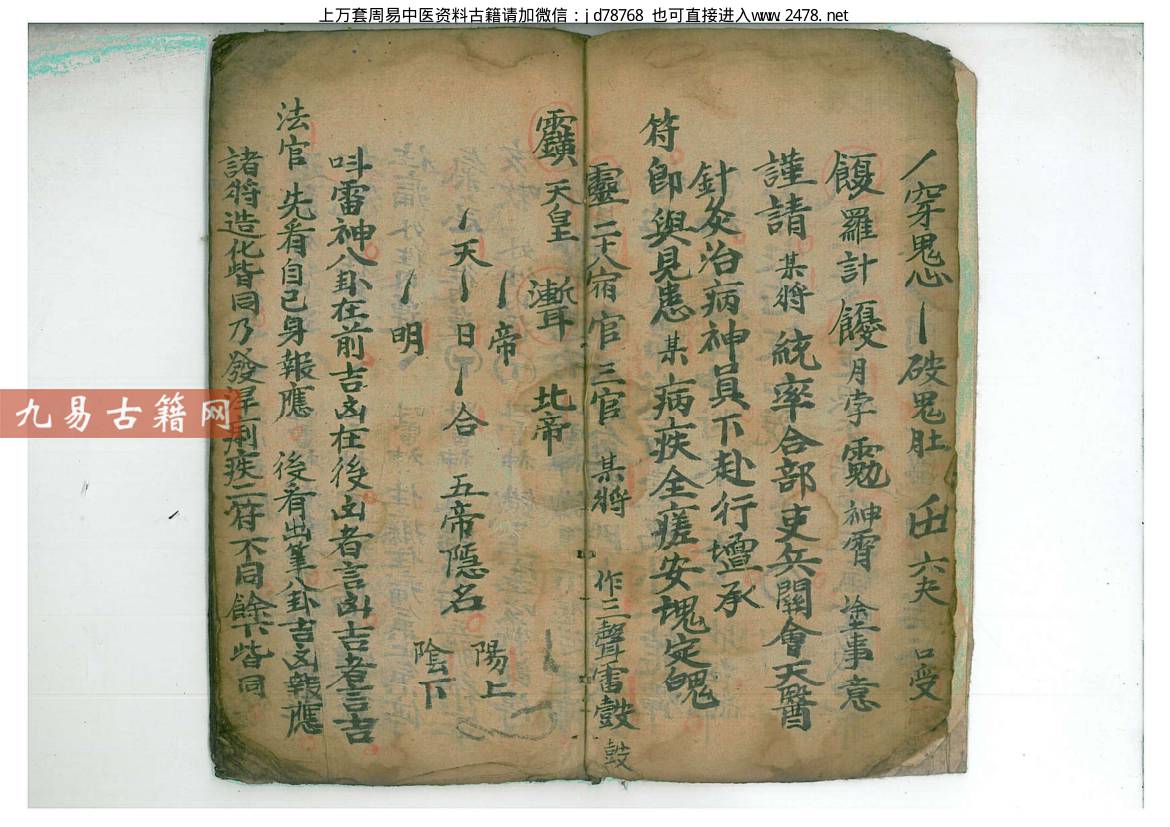 上万套周易中医资料古籍请加微信：jd78768 也可直接进入www.2478.net
丿穿鬼心丨破鬼肚 六夫 口受
羅計 月孛 神霄 塗事意
謹請某将統率合部吏兵關會天醫
針灸治病神員下赴行壇承
符卽與見患某病疾全瘥安魂定魄
靈二十八宿官三官 某将 作三聲雷鼓 鼓
天皇 北帝
丨帝 陽上
丿天丨日丨合 五帝隱名
丨明 陰下
呌雷神八卦在前吉凶在後凶者言凶吉者言吉
法官先看自己身報應 後看出筆八卦吉凶報應
諸将造化皆同乃發 疾二符不同餘下皆同
九易古籍网